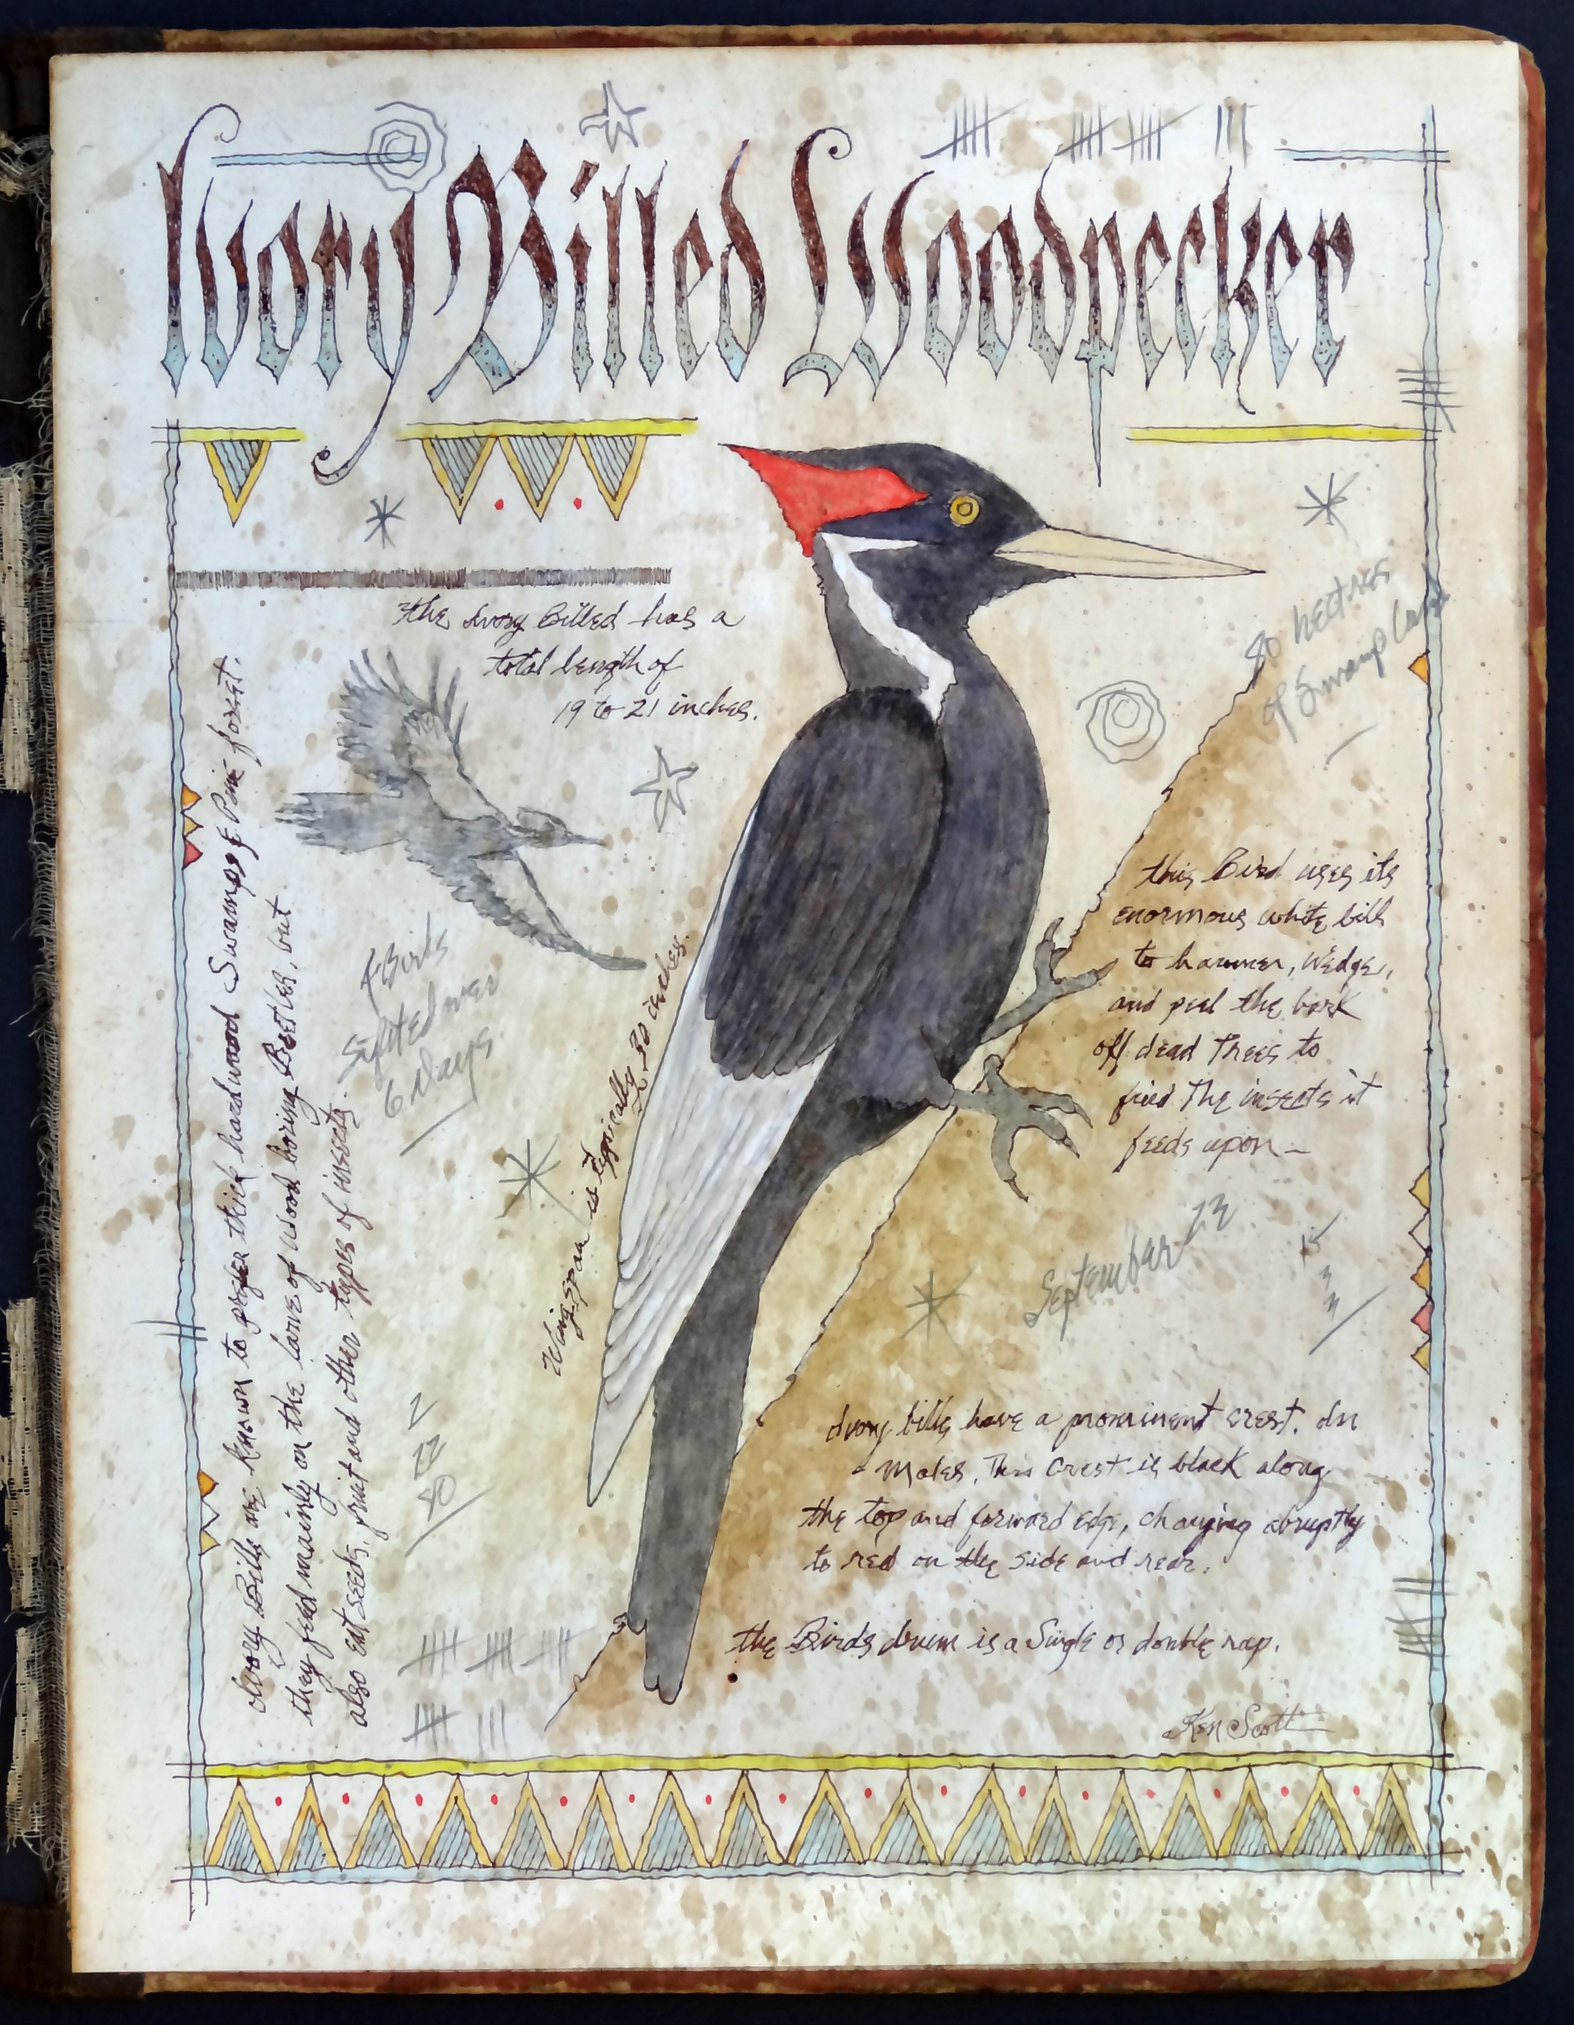 Ivory Billed Woodpecker
the Ivory Billed has a
total length of
19 to 21 inches.
80 hectres
of Swamp Land
this Bird uses its
enormous white bill
to hammer, wedge,
and peel the bark
off dead Trees to
find The insects it
feeds upon
Birds
Sighted over
6 days.
Wingspan is typically 30 inches.
Ivory Bills are known to prefer thick hardwood Swamps & Pine forest.
they feed mainly on the larve of wood boring Beetles, but
also eat seeds, fruit and other types of insects.
September 23
15
3
3
2
22
80
Ivory bills have a prominent crest. In
Males, This Crest is black along
the top and forward edge, changing abruptly
to red on the side and rear.
the Birds drum is a Single or double rap.
Ken Scott